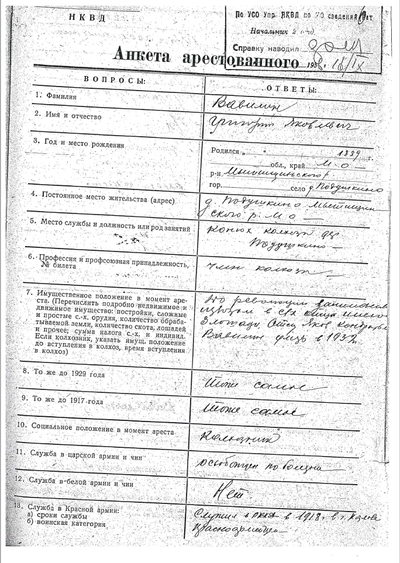 НКВД
По УСО Упр. НКВД по МО сведений нет
Начальник 2 отд
Справку наводил
Анкета арестованного
193
ВОПРОСЫ:
ОТВЕТЫ:
1. Фамилия
Вавилин
2. Имя и отчество
Григорий Яковлевич
3. Год и место рождения
Родился 1889 г.
обл., край М-о
р-н
гор. село д. Подушкино
4. Постоянное место жительства (адрес)
д. Подушкино Мытищин
ского р. М-о
5. Место службы и должность или род занятий
Конюх колхоз дер
Подушкино
6. Профессия и профсоюзная принадлежность,
№ билета
член колхоза
7. Имущественное положение в момент аре-
ста. (Перечислить подробно недвижимое и
движимое имущество: постройки, сложные
и простые с.-х. орудия, количество обраба-
тываемой земли, количество скота, лошадей
и прочее; сумма налога с.-х. и индивид.
Если колхозник, указать имущ. положение
до вступления в колхоз, время вступления
в колхоз)
До революции
в
лошадь. Отец Яков
Вавилин в 1932
8. То же до 1929 года
Тоже самое
9. То же до 1917 года
Тоже самое
10. Социальное положение в момент ареста
Колхозник
11. Служба в царской армии и чин
освобожден по болезни
12. Служба в белой армии и чин
Нет
13. Служба в Красной армии:
а) сроки службы
б) воинская категория
Служил в 1918 г. в г.
красноармейцем